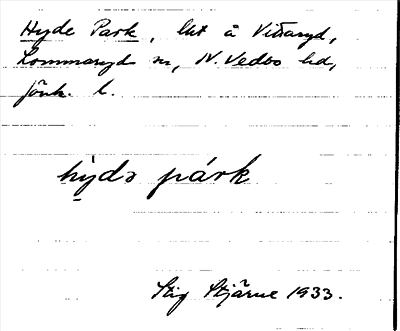 Hyde Park, lht å Vittaryd,
Lommaryds sn, N. Vedbo hd,
Jönk. l.
hydə párk
Stig Stjärne 1933.